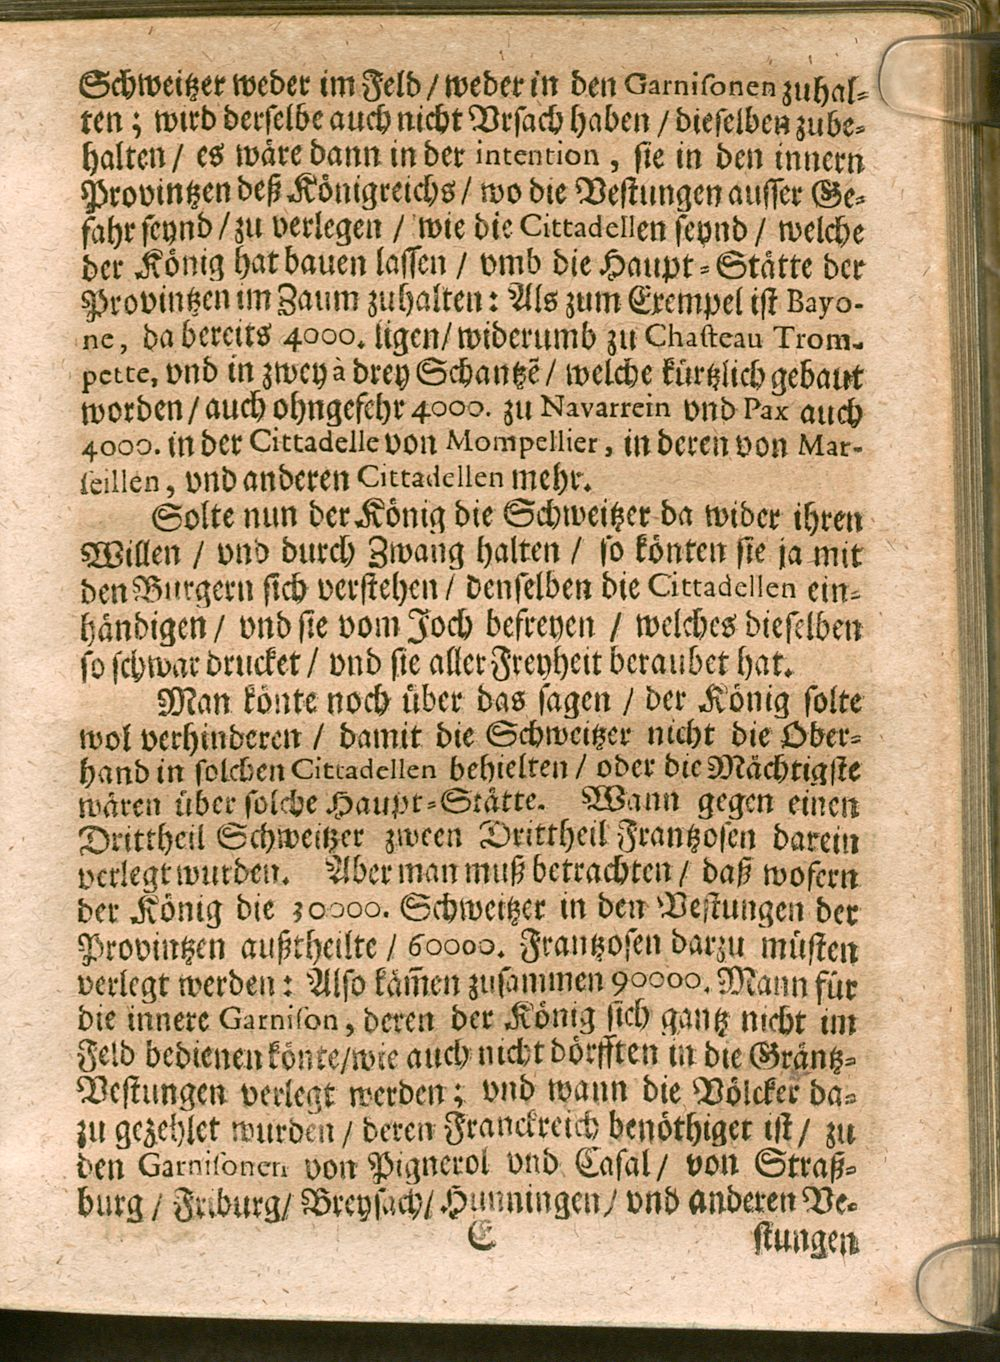 Schweitzer weder im Feld / weder in den Garnisonen zuhal-
ten; wird derselbe auch nicht Vrsach haben / dieselben zube-
halten / es wäre dann in der intention, sie in den innern
Provintzen deß Königreichs / wo die Vestungen ausser Ge-
fahr seynd / zu verlegen / wie die Cittadellen seynd / welche
der König hat bauen lassen / vmb die Haupt-Stätte der
Provintzen im Zaum zuhalten: Als zum Exempel ist Bayo-
ne, da bereits 4000. ligen / widerumb zu Chasteau Trom-
pette, vnd in zwey à drey Schantzē / welche kürtzlich gebaut
worden / auch ohngefehr 4000. zu Navarrein vnd Pax auch
4000. in der Cittadelle von Mompellier, in deren von Mar-
seillen, vnd anderen Cittadellen mehr.
Solte nun der König die Schweitzer da wider ihren
Willen / vnd durch Zwang halten / so könten sie ja mit
den Burgern sich verstehen / denselben die Cittadellen ein-
händigen / vnd sie vom Joch befreyen / welches dieselben
so schwar drucket / vnd sie aller Freyheit beraubet hat.
Man könte noch über das sagen / der König solte
wol verhinderen / damit die Schweitzer nicht die Ober-
hand in solchen Cittadellen behielten / oder die Mächtigste
wären über solche Haupt-Stätte. Wann gegen einen
Drittheil Schweitzer zween Drittheil Frantzosen darein
verlegt wurden. Aber man muß betrachten / daß wofern
der König die 30000. Schweitzer in den Vestungen der
Provintzen außtheilte / 60000. Frantzosen darzu müsten
verlegt werden: Also käm̄en zusammen 90000. Mann für
die innere Garnison, deren der König sich gantz nicht im
Feld bedienen könte / wie auch nicht dörfften in die Gräntz-
Vestungen verlegt werden; vnd wann die Völcker da-
zu gezehlet wurden / deren Franckreich benöthiget ist / zu
den Garnisonen von Pignerol vnd Casal / von Straß-
burg / Friburg / Breysach / Hunningen / vnd anderen Ve-
E stungen